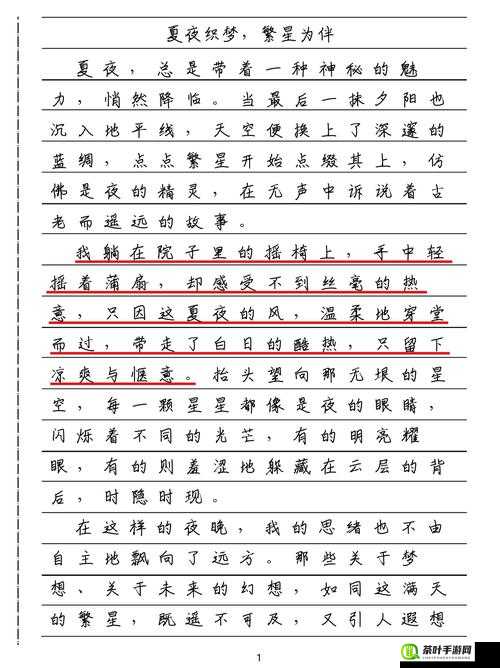 夏夜织梦，繁星为伴
夏夜，总是带着一种神秘的魅
力，悄然降临。当最后一抹夕阳也
沉入地平线，天空便换上了深邃的
蓝绸，点点繁星开始点缀其上，仿
佛是夜的精灵，在无声中诉说着古
老而遥远的故事。
我躺在院子里的摇椅上，手中轻
摇着蒲扇，却感受不到丝毫的热
意，只因这夏夜的风，温柔地穿堂
而过，带走了白日的酷热，只留下
凉爽与惬意。抬头望向那无垠的星
空，每一颗星星都像是夜的眼睛，
闪烁着不同的光芒，有的明亮耀
眼，有的则羞涩地躲藏在云层的背
后，时隐时现。
在这样的夜晚，我的思绪也不由
自主地飘向了远方。那些关于梦
想、关于未来的幻想，如同这满天
的繁星，既遥不可及，又引人遐想
1
茶叶手游网